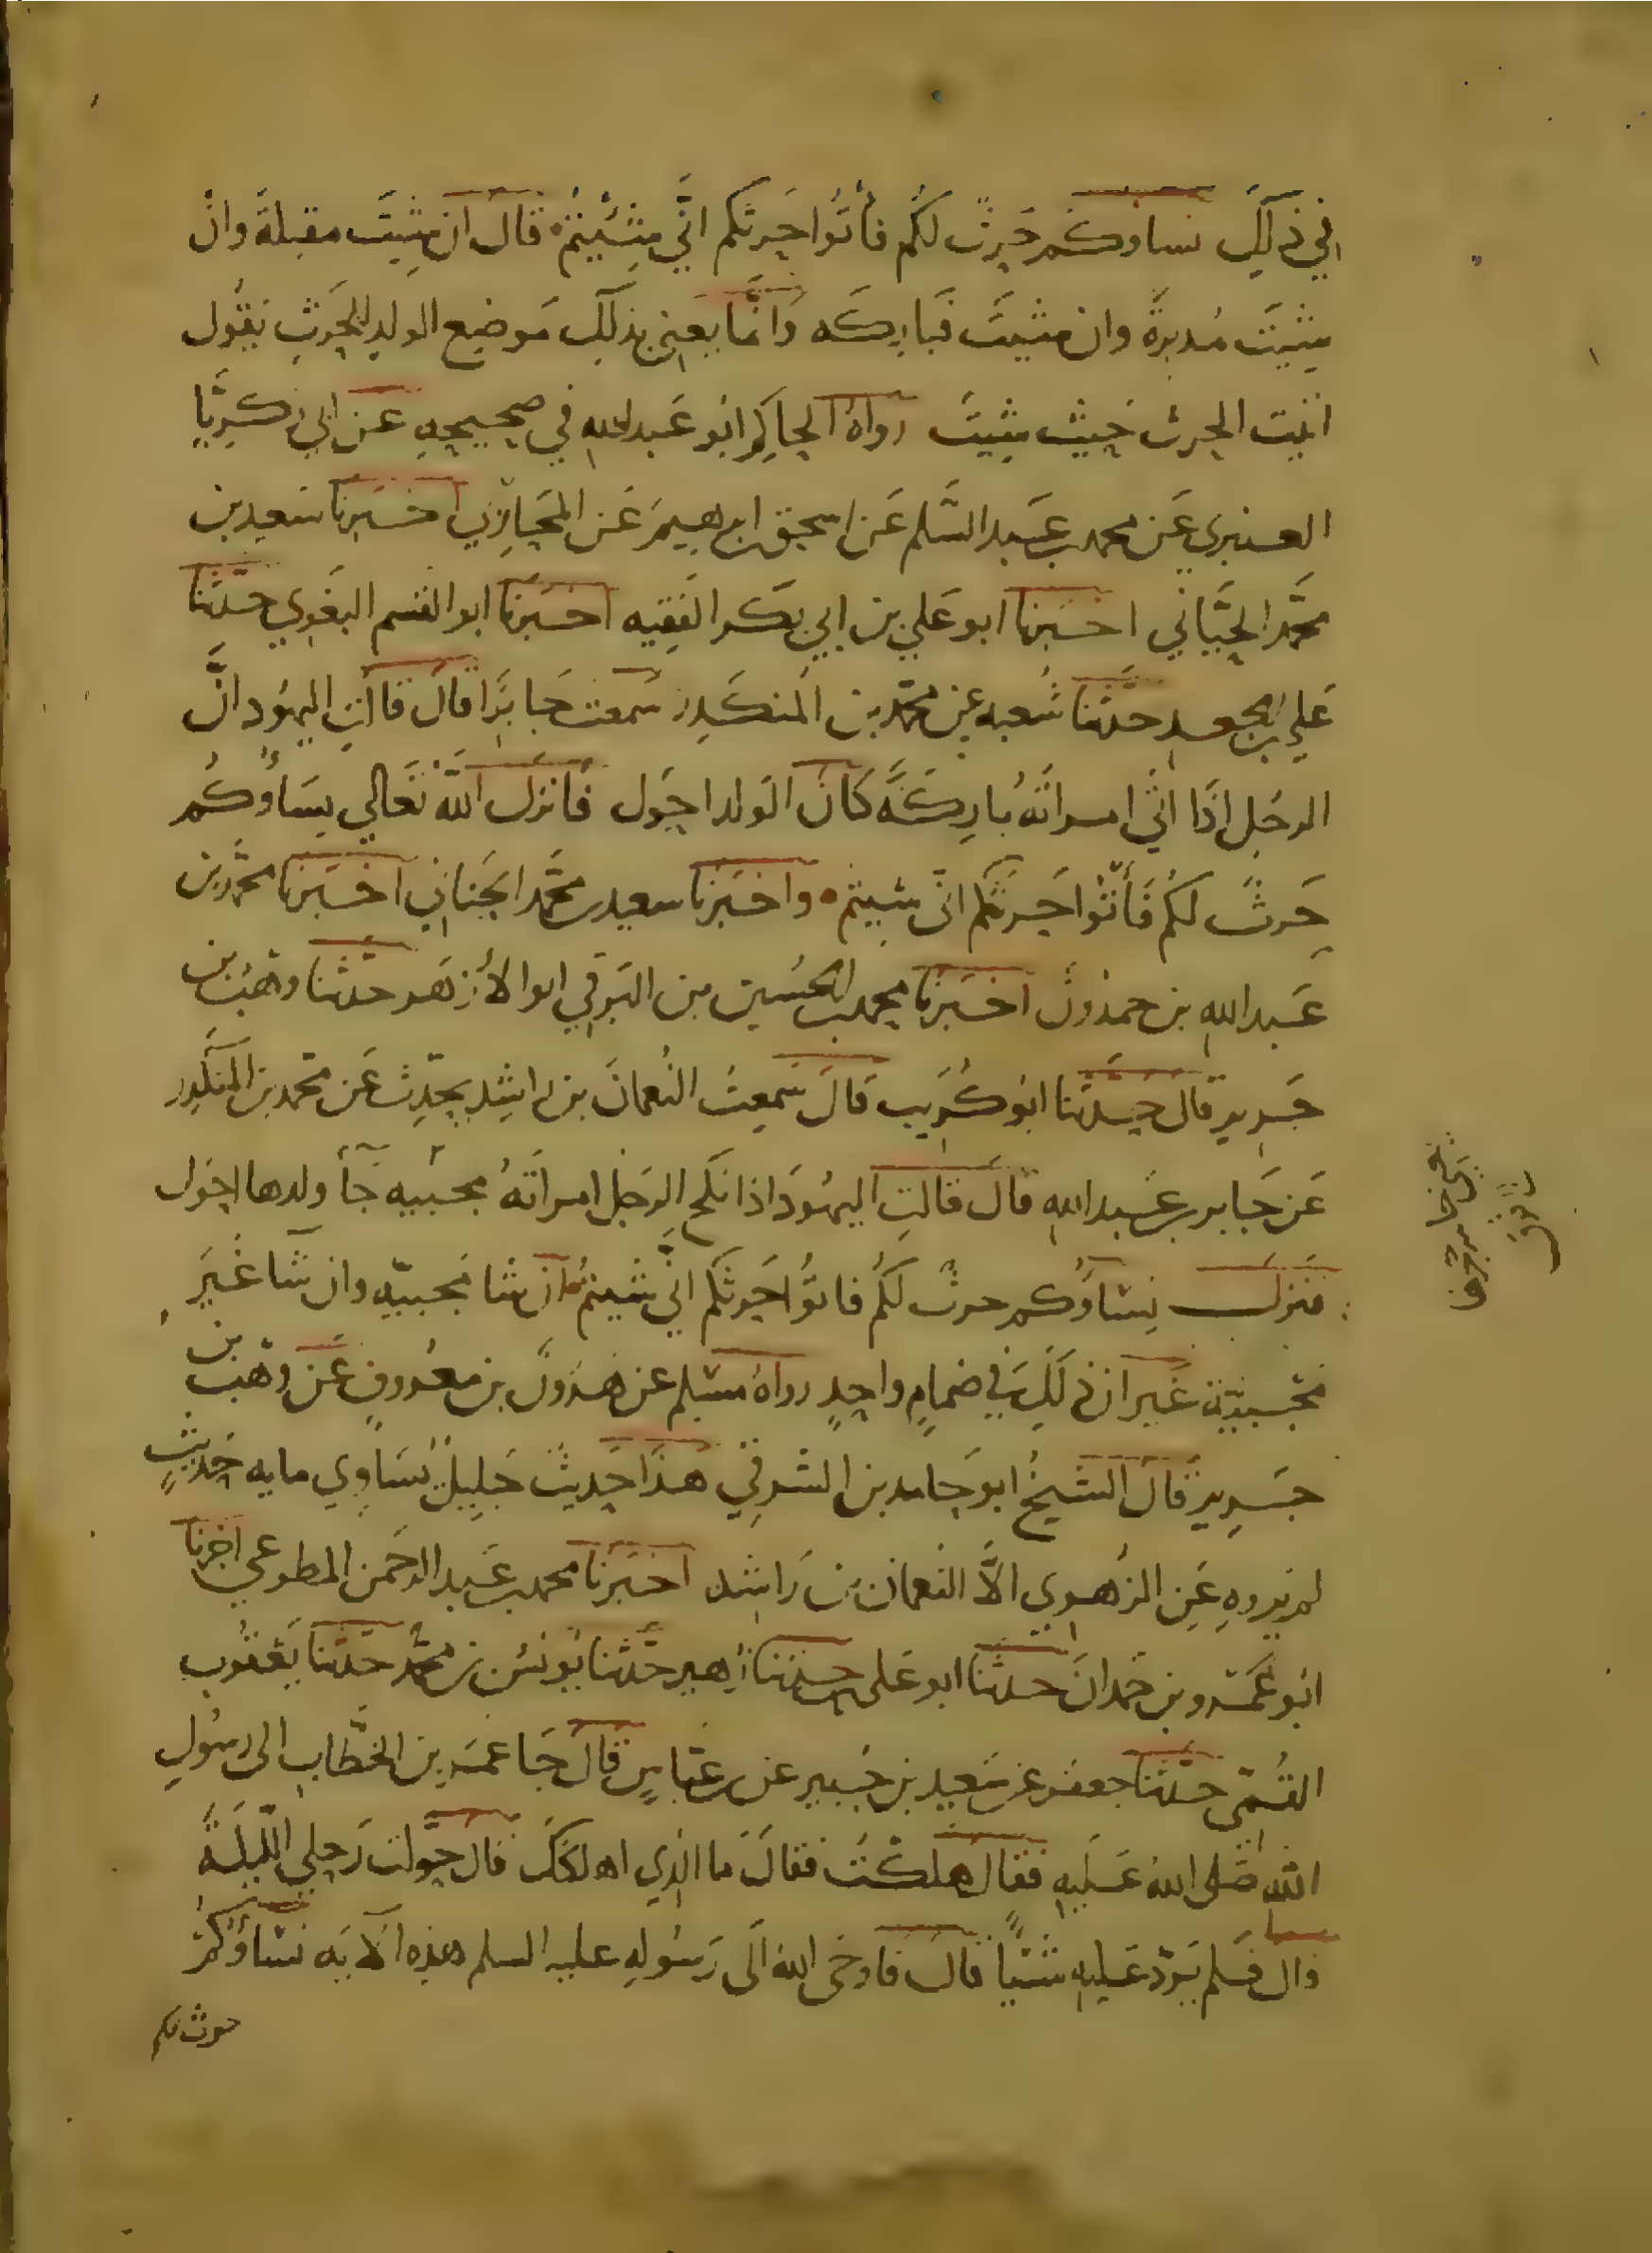 في ذلك نساوكم حرث لكم فأتوا حرثكم انّي شئتم قال ان شيت مقبلة وان
شيت مدبرة وان شيت فباركه وانما يعني بذلك موضع الولد للحرث يقول
ائت الحرث حيث شيت رواه الحاكم ابو عبد الله في صحيحه عن ابي زكريا
العنبري عن محمد بن عبد السلم عن اسحق بن ابرهيم عن المحاربي اخبرنا سعيد بن
محمد الحياني اخبرنا ابو علي بن ابي بكر الفقيه اخبرنا ابو القسم البغوي حدثنا
علي بن الجعد حدثنا شعبه عن محمد بن المنكدر سمعت جابرا قال قالت اليهود ان
الرجل اذا اتي امراته باركة كان الولد احول فانزل الله تعالي نساؤكم
حرث لكم فأتوا حرثكم انى شيتم واخبرنا سعيد بن محمد الحناني اخبرنا محمد بن
عبد الله بن حمدون اخبرنا محمد بن الحسين بن البرقي ابو الأزهر حدثنا وهب بن
جرير قال حدثنا ابو كريب قال سمعت النعمان بن راشد يحدث عن محمد بن المنكدر
عن جابر بن عبد الله قال قالت اليهود اذا نكح الرجل امراته مجبيه جآ ولدها احول
فنزلت نسآؤكم حرث لكم فاتوا حرثكم انّي شيتم ان شا مجبيّه وان شآ غير
مجبيّة غير ان ذلك في ضمام واحد رواه مسلم عن هرون بن معروف عن وهب بن
جرير قال الشيخ ابو حامد بن الشرقي هذا حديث جليل يساوي مايه حديث
لم يروه عن الزهري الا النعمان بن راشد اخبرنا محمد بن عبد الرحمن المطوعي اخبرنا
ابو عمرو بن حمدان حدثنا ابو علي حدثنا زهير حدثنا يونس بن محمد حدثنا يعقوب
القمّي حدثنا جعفر عن سعيد بن جبير عن بن عباس قال جا عمر بن الخطاب الى رسول
الله صلى الله عليه فقال هلكت فقال ما الذي اهلكك قال حوّلت رحلي الليلة
قال فلم يرد عليه شيّا قال فاوحى الله الى رسوله عليه السلم هذه الآيه نسآؤكم
حرث لكم